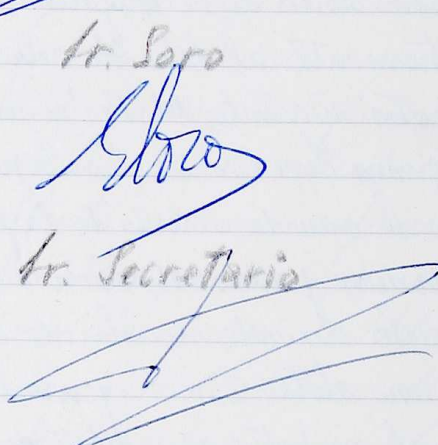 Sr. Soro
Sr. Secretario